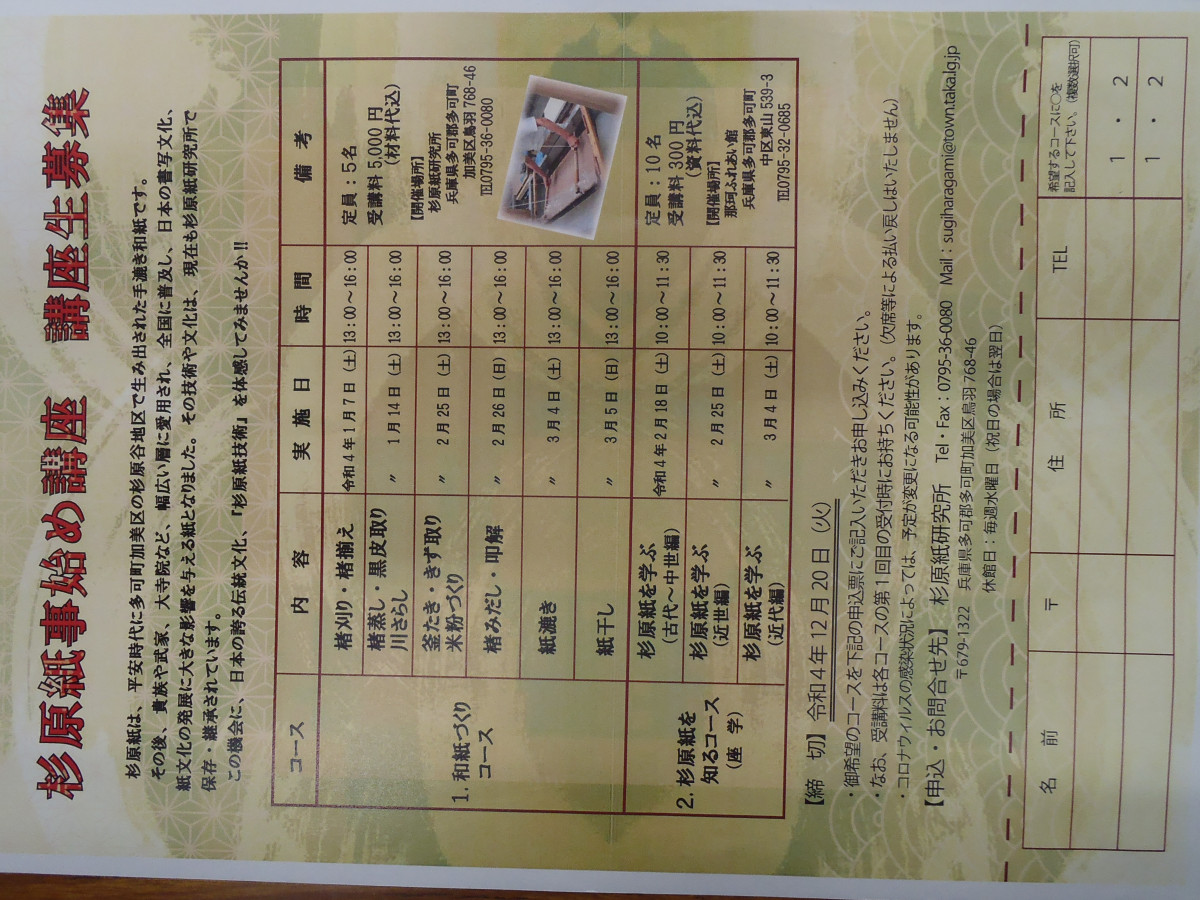 杉原紙事始め講座　講座生募集
杉原紙は、平安時代に多可町加美区の杉原谷地区で生み出された手漉き和紙です。
その後、貴族や武家、大寺院など、幅広い層に愛用され、全国に普及し、日本の書写文化、
紙文化の発展に大きな影響を与える紙となりました。その技術や文化は、現在も杉原紙研究所で
保存・継承されています。
この機会に、日本の誇る伝統文化、『杉原紙技術』を体感してみませんか!!
コース　内　容　実　施　日　時　間　備　考
1.和紙づくり
コース
楮刈り・楮揃え　令和4年1月7日（土）　13：00～16：00
楮蒸し・黒皮取り
川さらし　〃　1月14日（土）　13：00～16：00
釜たき・きず取り
米粉づくり　〃　2月25日（土）　13：00～16：00
楮みだし・叩解　〃　2月26日（日）　13：00～16：00
紙漉き　〃　3月4日（土）　13：00～16：00
紙干し　〃　3月5日（日）　13：00～16：00
定員：5名
受講料 5,000円
（材料代込）
【開催場所】
杉原紙研究所
兵庫県多可郡多可町
加美区鳥羽 768-46
℡0795-36-0080
2.杉原紙を
知るコース
（座　学）
杉原紙を学ぶ
（古代～中世編）　令和4年2月18日（土）　10：00～11：30
杉原紙を学ぶ
（近世編）　〃　2月25日（土）　10：00～11：30
杉原紙を学ぶ
（近代編）　〃　3月4日（土）　10：00～11：30
定員：10名
受講料 300円
（資料代込）
【開催場所】
那珂ふれあい館
兵庫県多可郡多可町
中区東山 539-3
℡0795-32-0685
【締　切】令和4年12月20日（火）
・御希望のコースを下記の申込票にご記入いただきお申し込みください。
・なお、受講料は各コースの第1回目の受付時にお持ちください。（欠席等による払い戻しはいたしません）
・コロナウィルスの感染状況によっては、予定が変更になる可能性があります。
【申込・お問合せ先】杉原紙研究所　Tel・Fax：0795-36-0080　Mail：sugiharagami@town.taka.lg.jp
〒679-1322　兵庫県多可郡多可町加美区鳥羽 768-46
休館日：毎週水曜日（祝日の場合は翌日）
名　前　〒　住　所　TEL　希望するコースに○を
記入して下さい。（複数選択可）
1　・　2
1　・　2